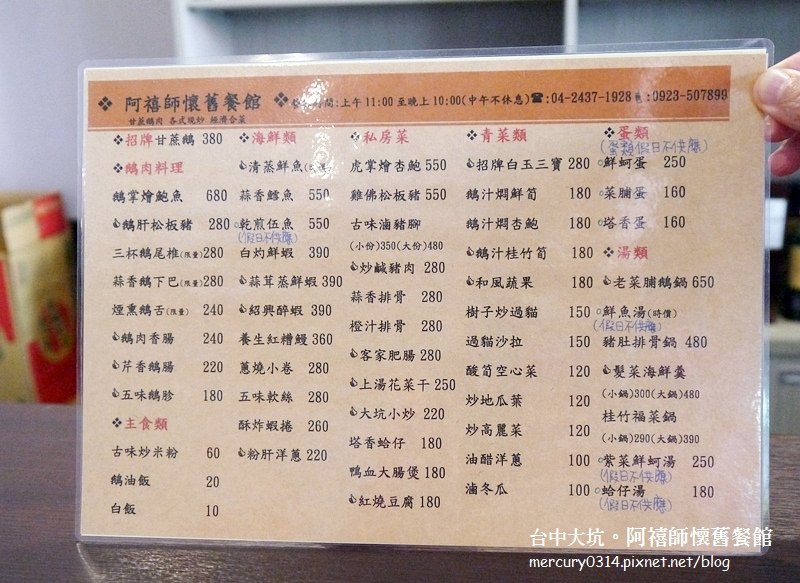 ❖ 阿禧師懷舊餐館 ❖ 營業時間:上午 11:00 至晚上 10:00(中午不休息)☎:04-2437-1928 0923-507899
甘蔗鵝肉 各式現炒 經濟合菜
❖招牌甘蔗鵝 380
❖鵝肉料理
鵝掌燴鮑魚 680
鵝肝松板豬 280
三杯鵝尾椎(限量)280
蒜香鵝下巴(限量)280
煙熏鵝舌(限量) 240
鵝肉香腸 240
芹香鵝腸 220
五味鵝胗 180
❖主食類
古味炒米粉 60
鵝油飯 20
白飯 10
❖海鮮類
清蒸鮮魚
蒜香鱈魚 550
乾煎伍魚 550
(假日不供應)
白灼鮮蝦 390
蒜茸蒸鮮蝦 390
紹興醉蝦 390
養生紅糟鰻 360
蔥燒小卷 280
五味軟絲 280
酥炸蝦捲 260
粉肝洋蔥 220
❖私房菜
虎掌燴杏鮑 550
雞佛松板豬 550
古味滷豬腳
(小份)350(大份)480
炒鹹豬肉 280
蒜香排骨 280
橙汁排骨 280
客家肥腸 280
上湯花菜干 250
大坑小炒 220
塔香蛤仔 180
鴨血大腸煲 180
紅燒豆腐 180
❖青菜類
招牌白玉三寶 280
鵝汁燜鮮筍 180
鵝汁燜杏鮑 180
鵝汁桂竹筍 180
和風蔬果 180
樹子炒過貓 150
過貓沙拉 150
酸筍空心菜 120
炒地瓜葉 120
炒高麗菜 120
油醋洋蔥 100
滷冬瓜 100
❖蛋類
(蛋類假日不供應)
鮮蚵蛋 250
菜脯蛋 160
塔香蛋 160
❖湯類
老菜脯鵝鍋 650
鮮魚湯(時價)
(假日不供應)
豬肚排骨鍋 480
髮菜海鮮羹
(小鍋)300(大鍋)480
桂竹福菜鍋
(小鍋)290(大鍋)390
紫菜鮮蚵湯 250
(假日不供應)
蛤仔湯 180
(假日不供應)
台中大坑。阿禧師懷舊餐館
mercury0314.pixnet.net/blog